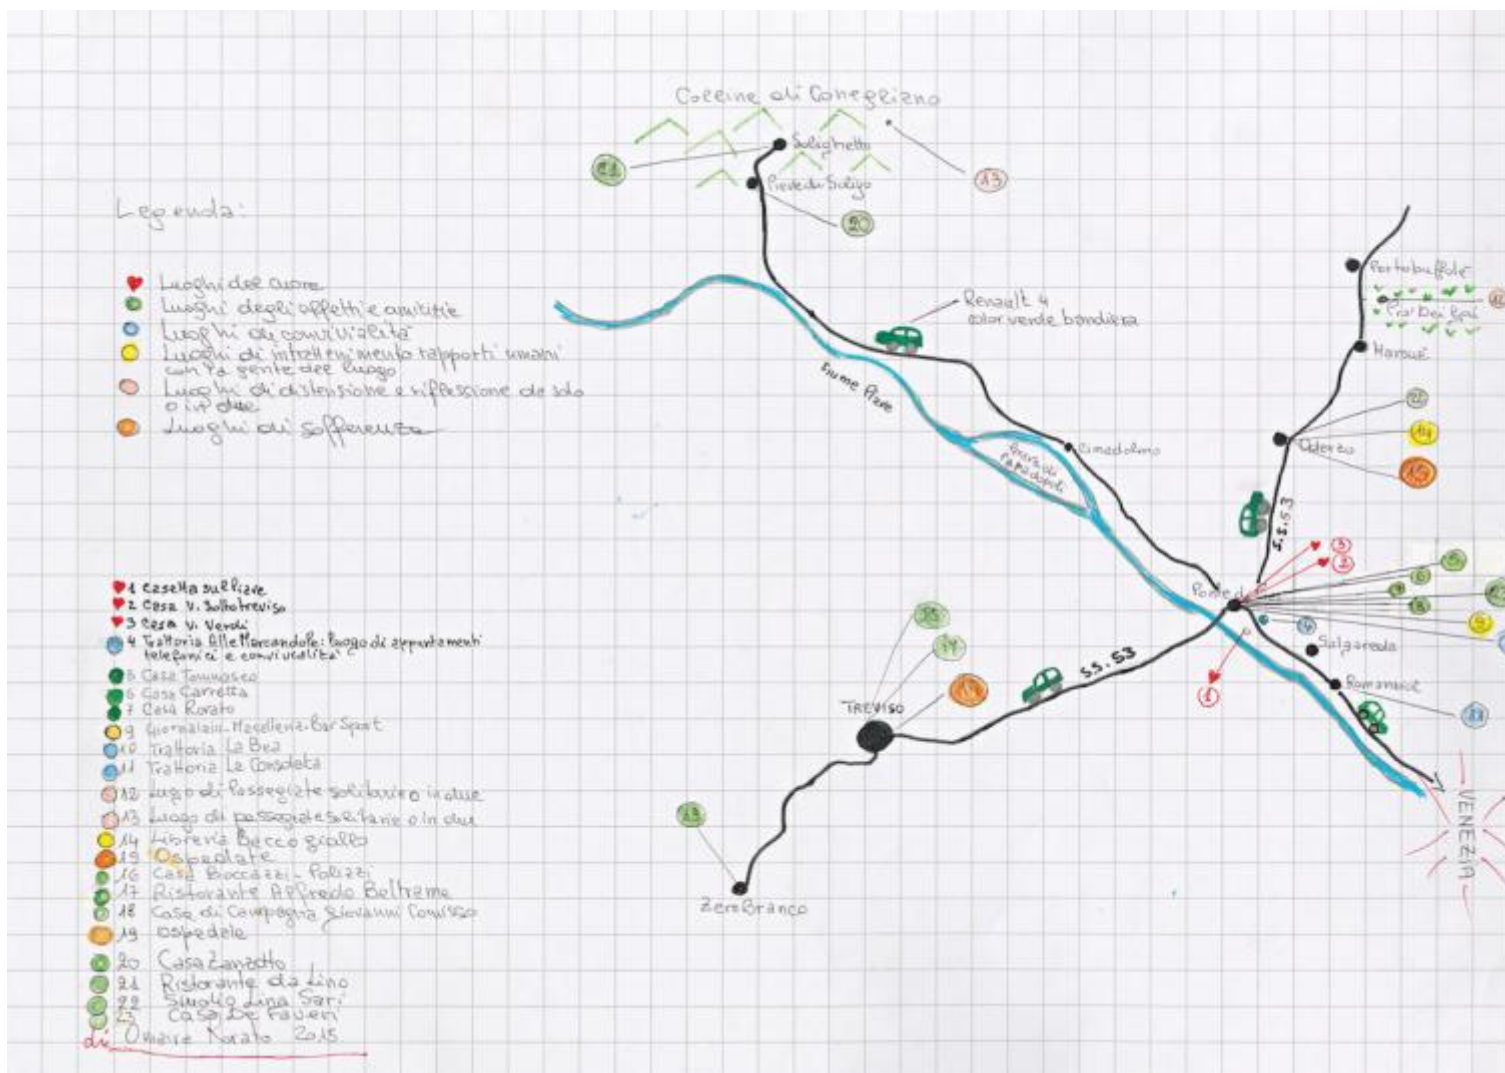 Colline di Conegliano
Solighetto
21
13
Pieve di Soligo
20
Legenda:
Luoghi del cuore
Luoghi degli affetti e amicizie
Luoghi di convivialità
Luoghi di intrattenimento rapporti umani
con la gente del luogo
Luoghi di distensione e riflessione da solo
o in due
Luoghi di sofferenza
Renault 4
color verde bandiera
Portobuffolè
Prà Dei Gai
Mansuè
Fiume Piave
Cimadolmo
Grave di
Papadopoli
Oderzo
14
15
S.S. 53
3
2
5
6
7
8
9
Ponte d
4
Salgareda
Romanziol
11
1
S.S. 53
TREVISO
17
VENEZIA
Zero Branco
1 Casetta sul Piave
2 Casa V. Sottotreviso
3 Casa V. Verdi
4 Trattoria Alle Marcandole: luogo di appuntamenti
telefonici e convivialità
5 Casa Tommaseo
6 Casa Carretta
7 Casa Rorato
9 Giornalaio-Macelleria-Bar Sport
10 Trattoria La Bea
11 Trattoria La Consoleta
12 Lugo di Passegiate solitarie o in due
13 Luogo di passegiate solitarie o in due
14 Libreria Becco giallo
15 Ospedale
16 Casa Boccazzi - Polizzi
17 Ristorante Alfredo Beltrame
18 Casa di Campagna Giovanni Comisso
19 Ospedale
20 Casa Zanzotto
21 Ristorante da Lino
22 Studio Lina Sari
23 Casa De Faveri
di Omaire Rorato 2015